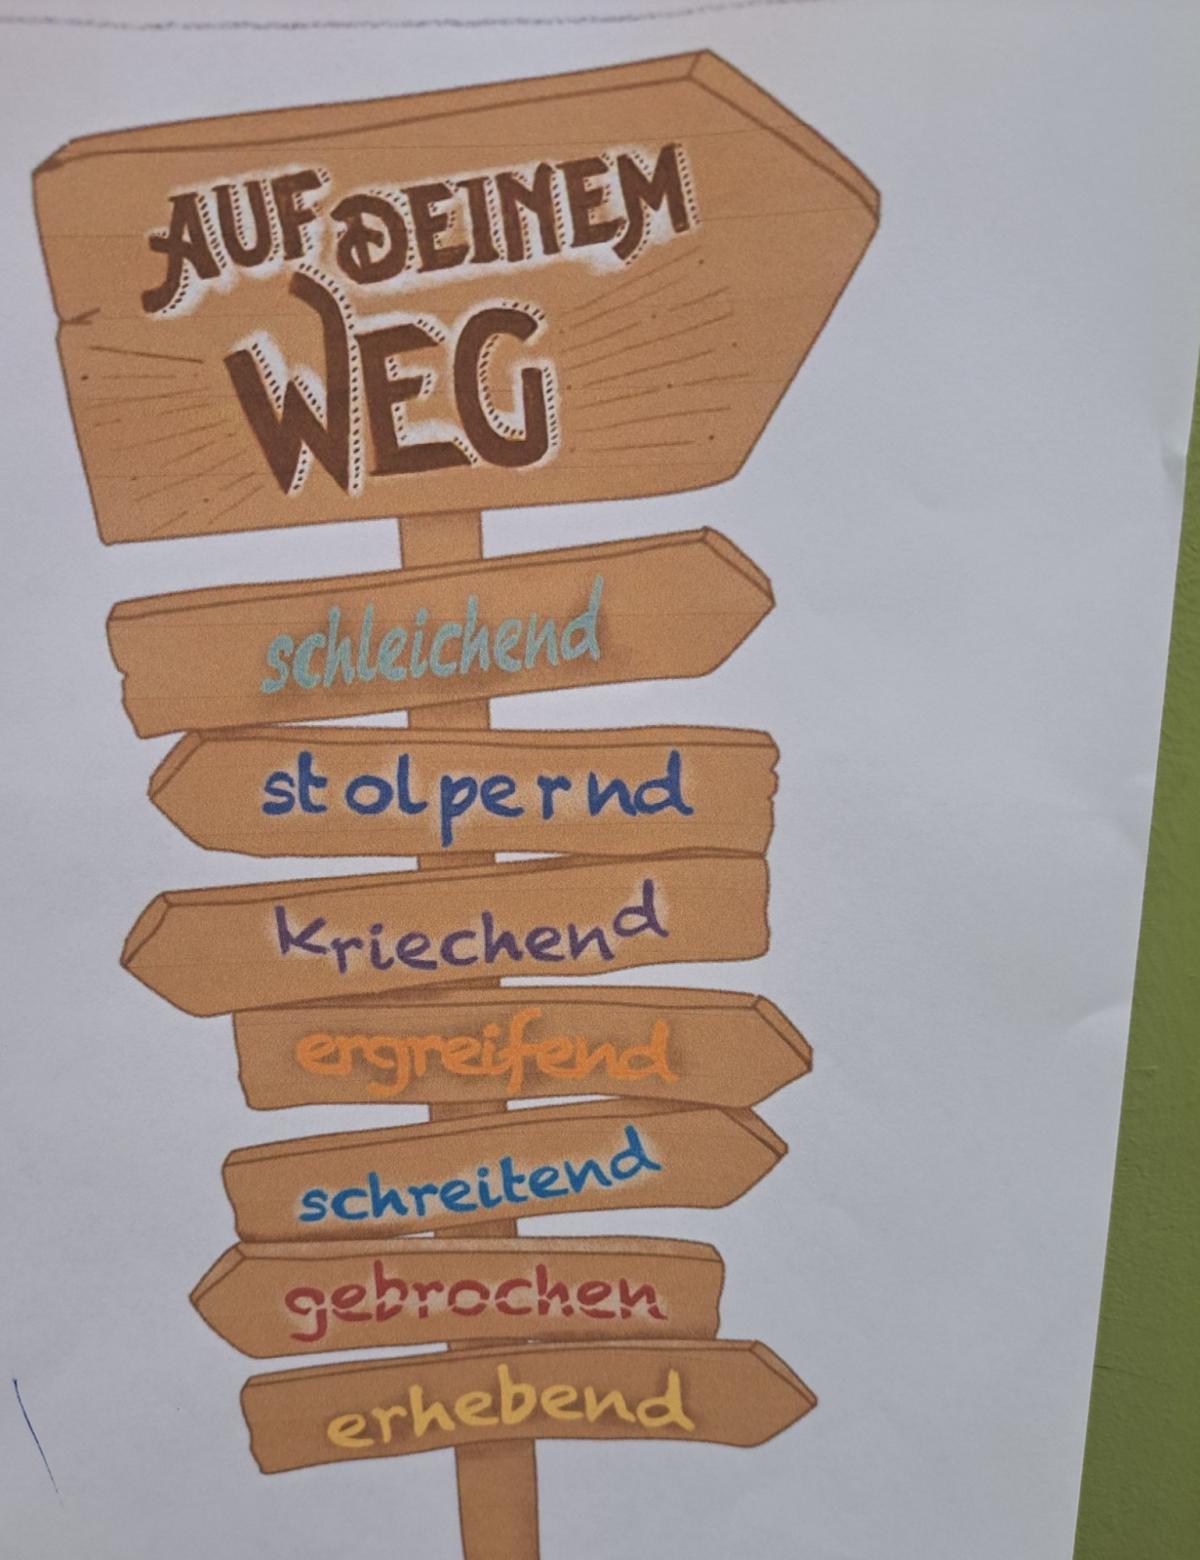 AUF DEINEM
WEG
schleichend
stolpernd
kriechend
ergreifend
schreitend
gebrochen
erhebend